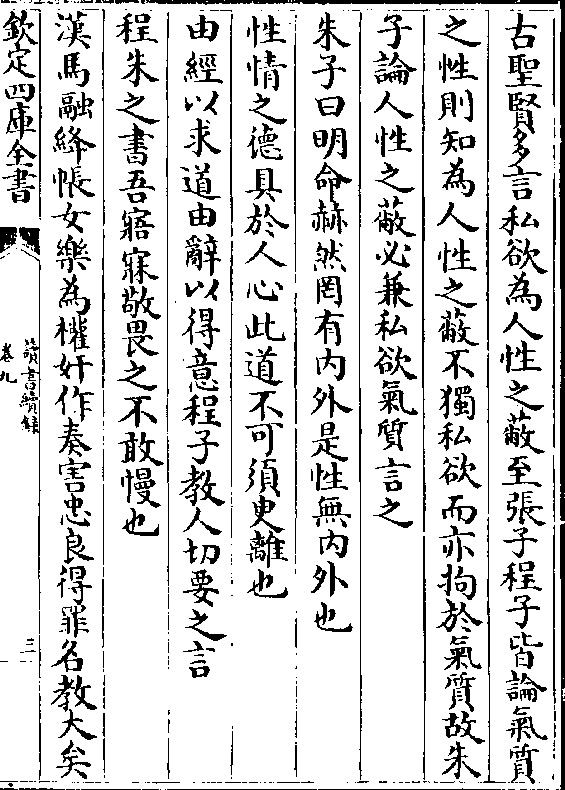 古聖賢多言私欲為人性之蔽至張子程子皆論氣質
之性則知為人性之蔽不獨私欲而亦拘於氣質故朱
子論人性之蔽必兼私欲氣質言之
朱子曰明命赫然罔有内外是性無内外也
性情之德具於人心此道不可須臾離也
由經以求道由辭以得意程子教人切要之言
程朱之書吾寤寐敬畏之不敢慢也
漢馬融絳帳女樂為權奸作奏害忠良得罪名教大矣
欽定四庫全書
讀書續錄
卷九
三